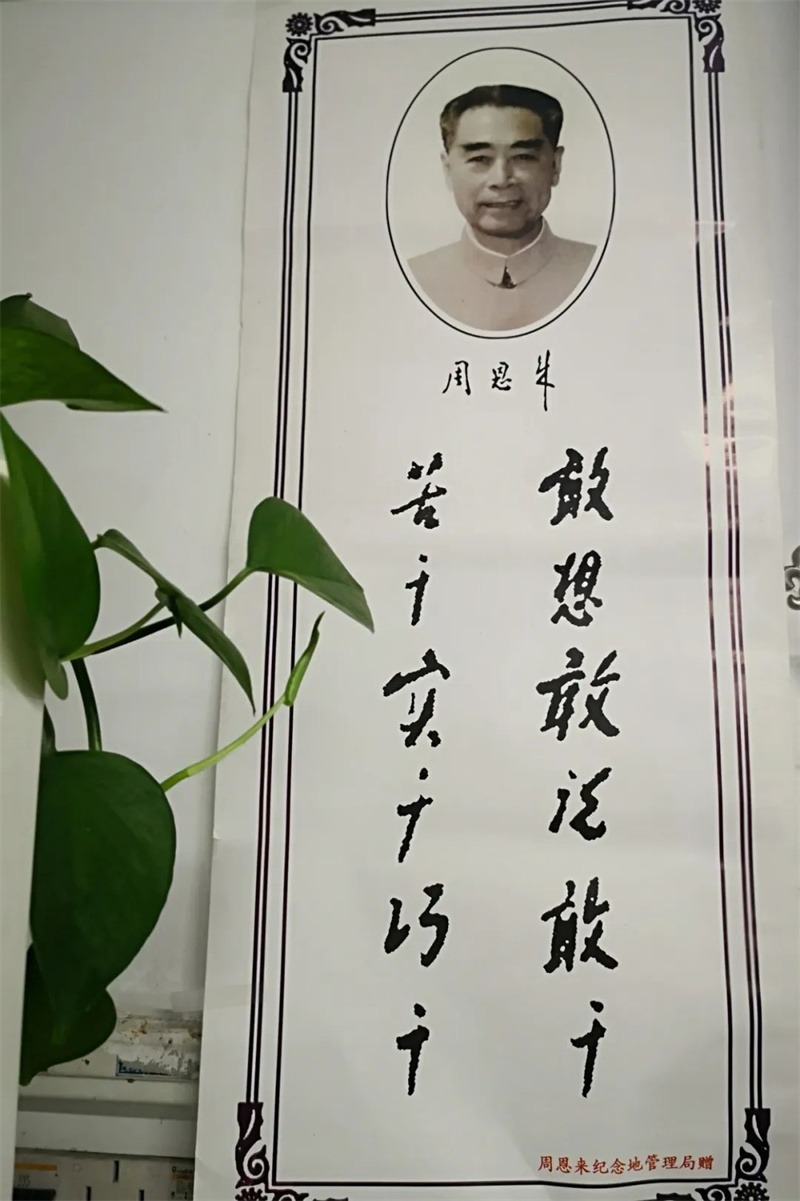 周恩来
敢想敢说敢干
苦干实干巧干
周恩来纪念地管理局赠